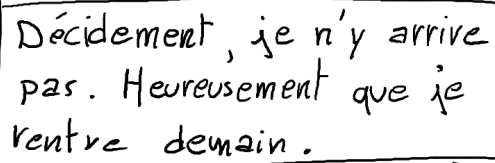 Décidement, je n'y arrive
pas. Heureusement que je
rentre demain.